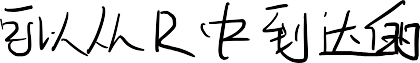 可以从R中到达的